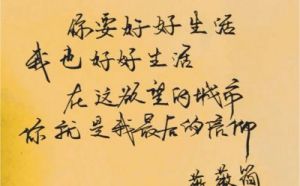 你要好好生活
我也好好生活
在这欲望的城市
你就是我最后的信仰